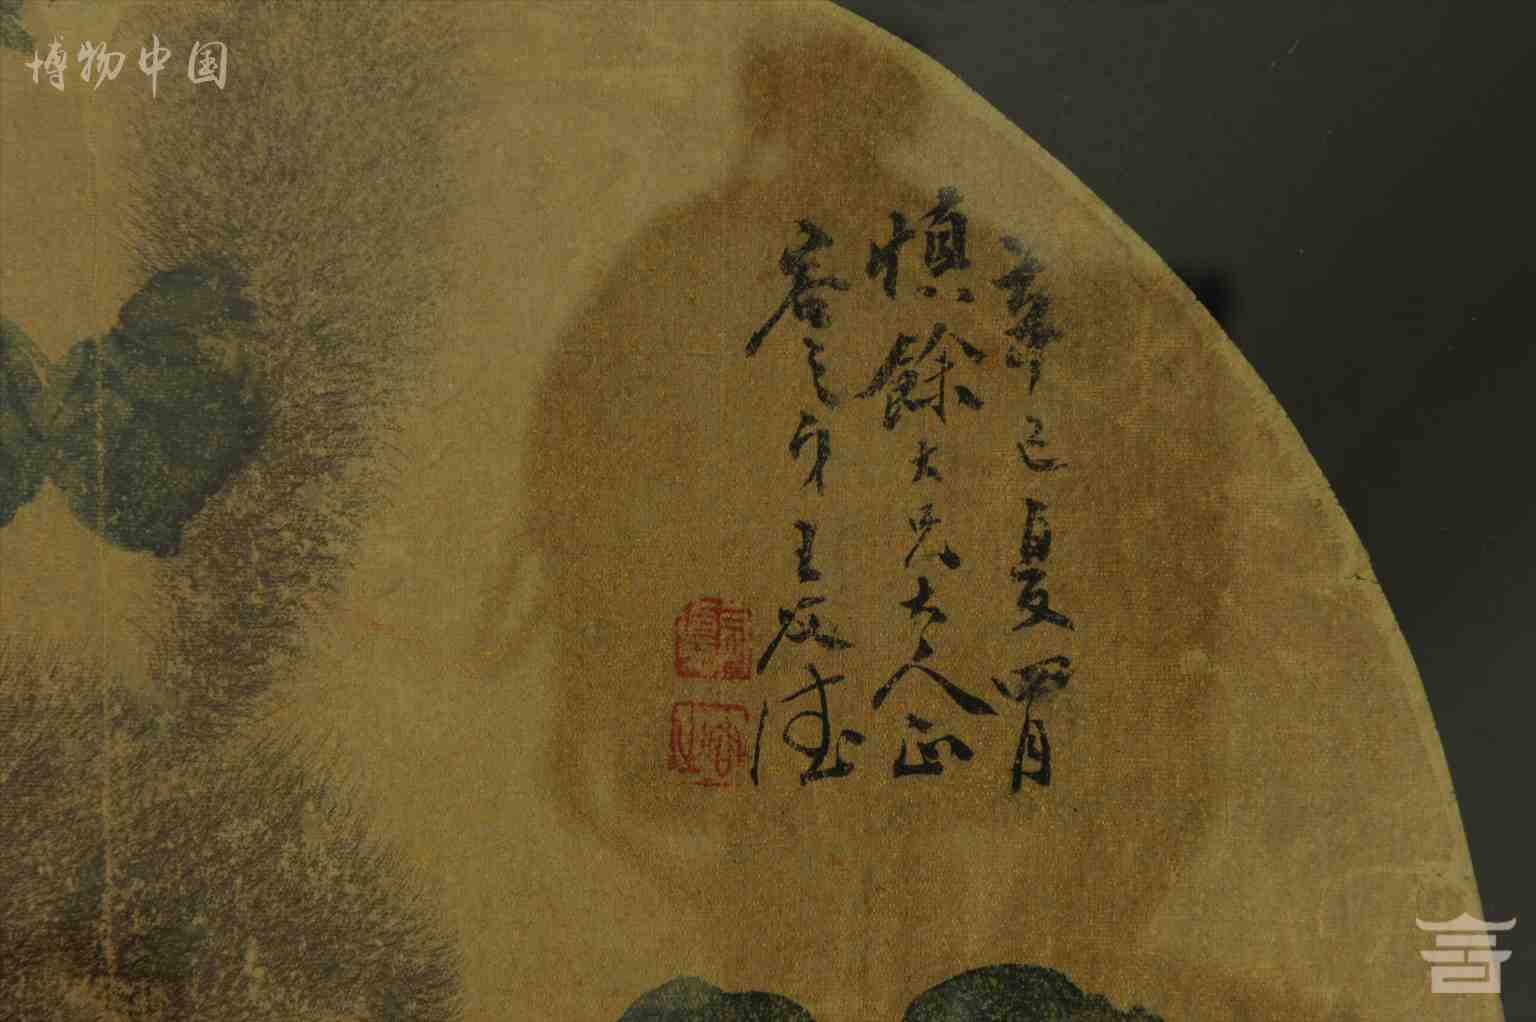 博物中国
辛巳夏四月
慎餘大兄大人正
容之弟王